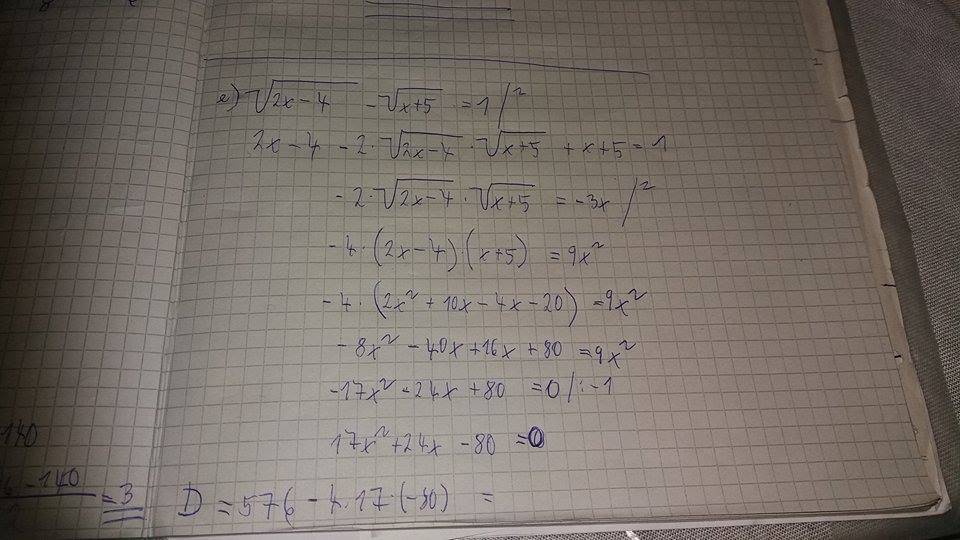 e) √(2x-4) - √(x+5) = 1 /²
2x-4 -2·√(2x-4)·√(x+5) +x+5=1
-2·√(2x-4)·√(x+5) = -3x /²
-4·(2x-4)·(x+5) =9x²
-4·(2x²+10x-4x-20) =9x²
-8x²-40x+16x+80 =9x²
-17x²-24x+80 =0/:-1
17x²+24x-80 =0
140
-140 =3
D=576-4·17·(-80) =